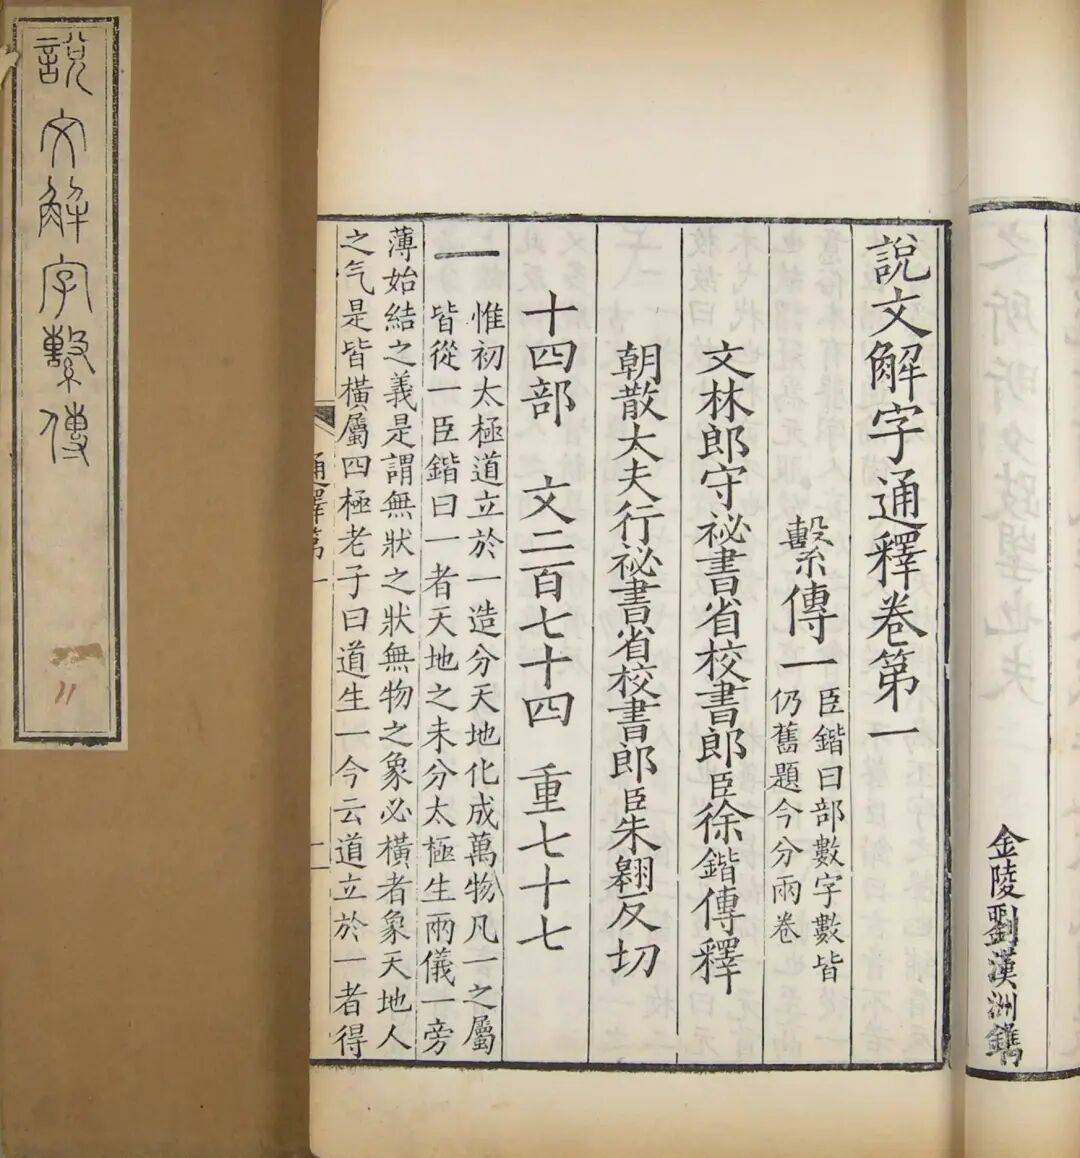 說文解字繫傳
11
金陵劉漢洲鐫
說文解字通釋卷第一
繫傳一
臣鍇曰部數字數皆
仍舊題今分兩卷
文林郎守祕書省校書郎臣徐鍇傳釋
朝散大夫行祕書省校書郎臣朱翱反切
十四部 文二百七十四 重七十七
一
惟初太極道立於一造分天地化成萬物凡一之屬
皆從一臣鍇曰一者天地之未分太極生兩儀一旁
薄始結之義是謂無狀之狀無物之象必橫者象天地人
之气是皆橫屬四極老子曰道生一今云道立於一者得
通釋第一